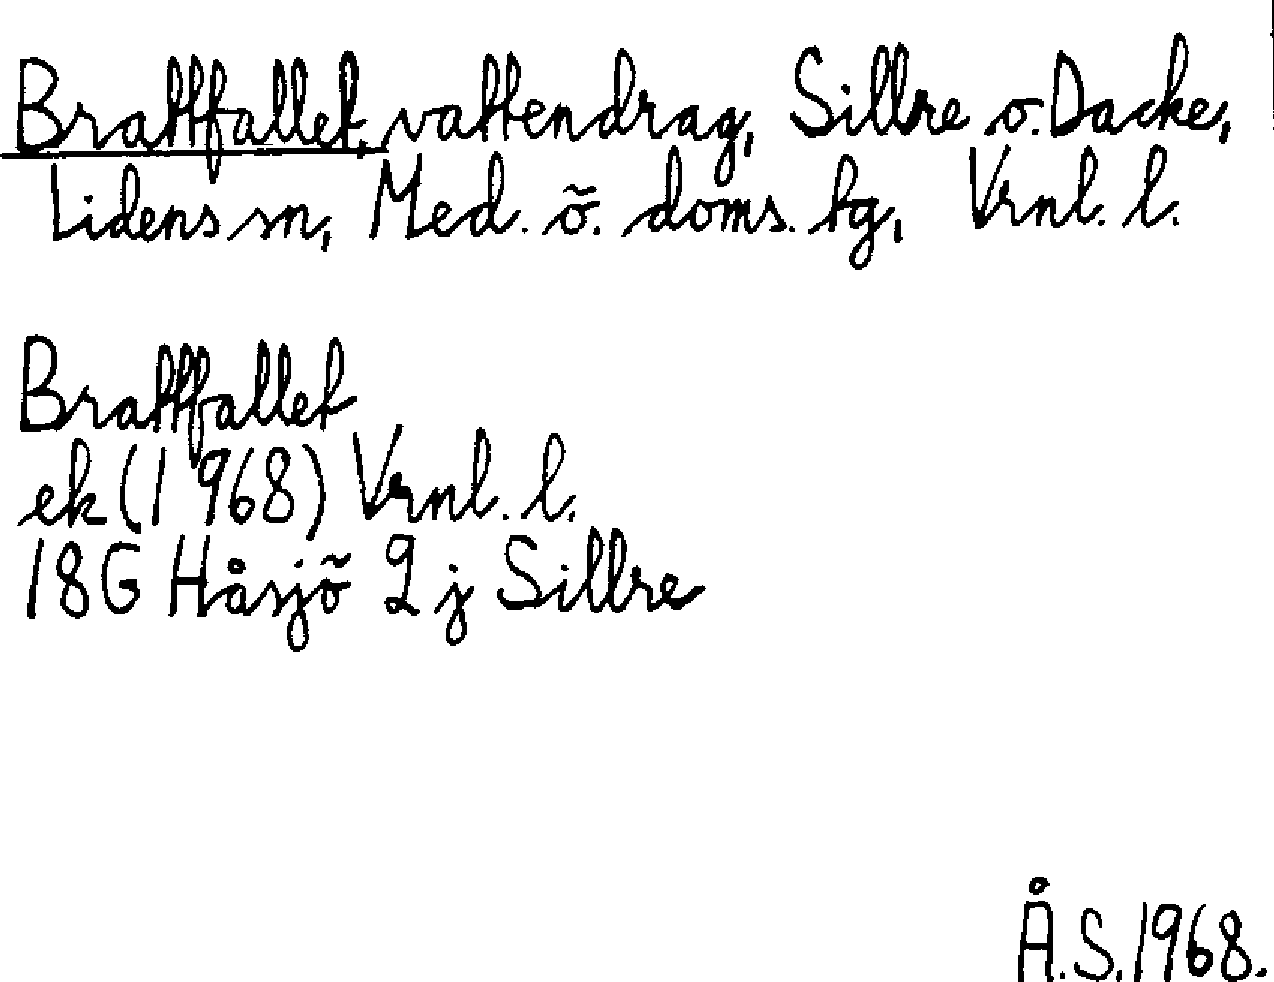 Brattfallet, vattendrag, Sillre o. Dacke,
Lidens sn, Med. ö. doms. tg, Vrnl. l.
Brattfallet
ek (1968) Vrnl. l.
18G Håsjö 2 j Sillre
Å.S. 1968.